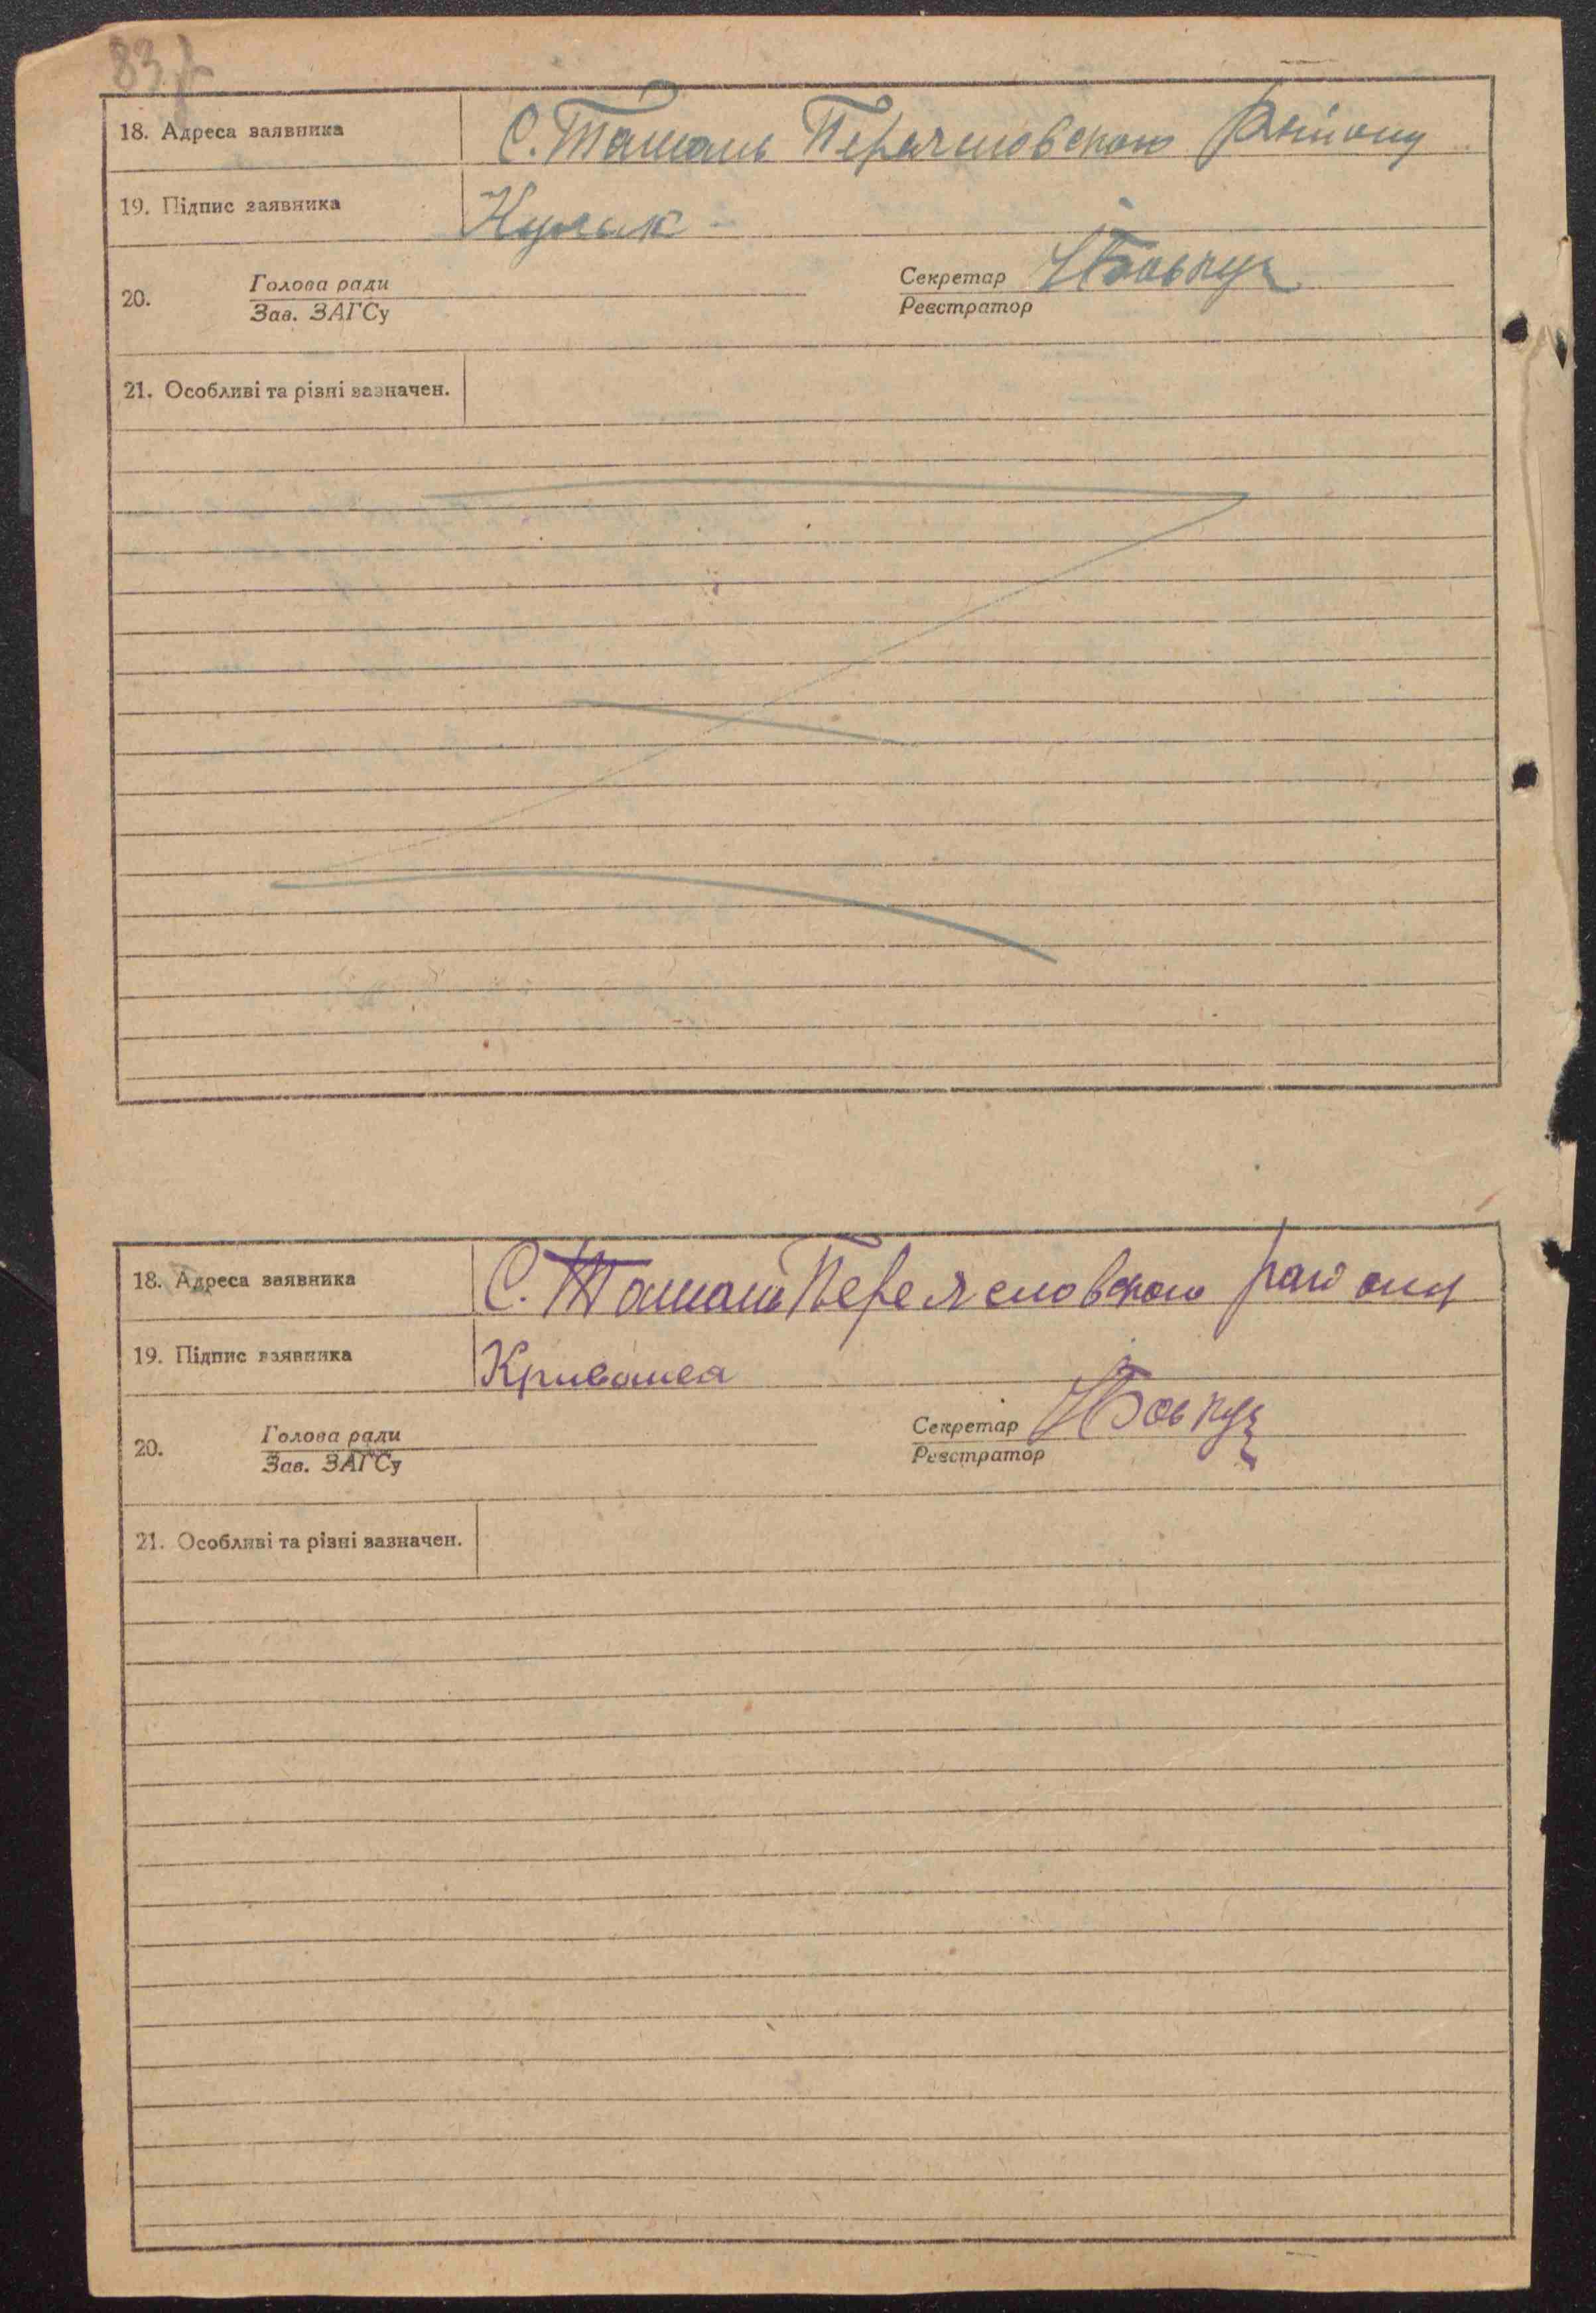 83
18. Адреса заявника С. Ташань Переяславского району
19. Підпис заявника
20. Голова ради Секретар
Зав. ЗАГСу Реєстратор
21. Особливі та різні зазначен.
18. Адреса заявника С. Ташань Переяславского району
19. Підпис заявника Кривошея
20. Голова ради Секретар
Зав. ЗАГСу Реєстратор
21. Особливі та різні зазначен.